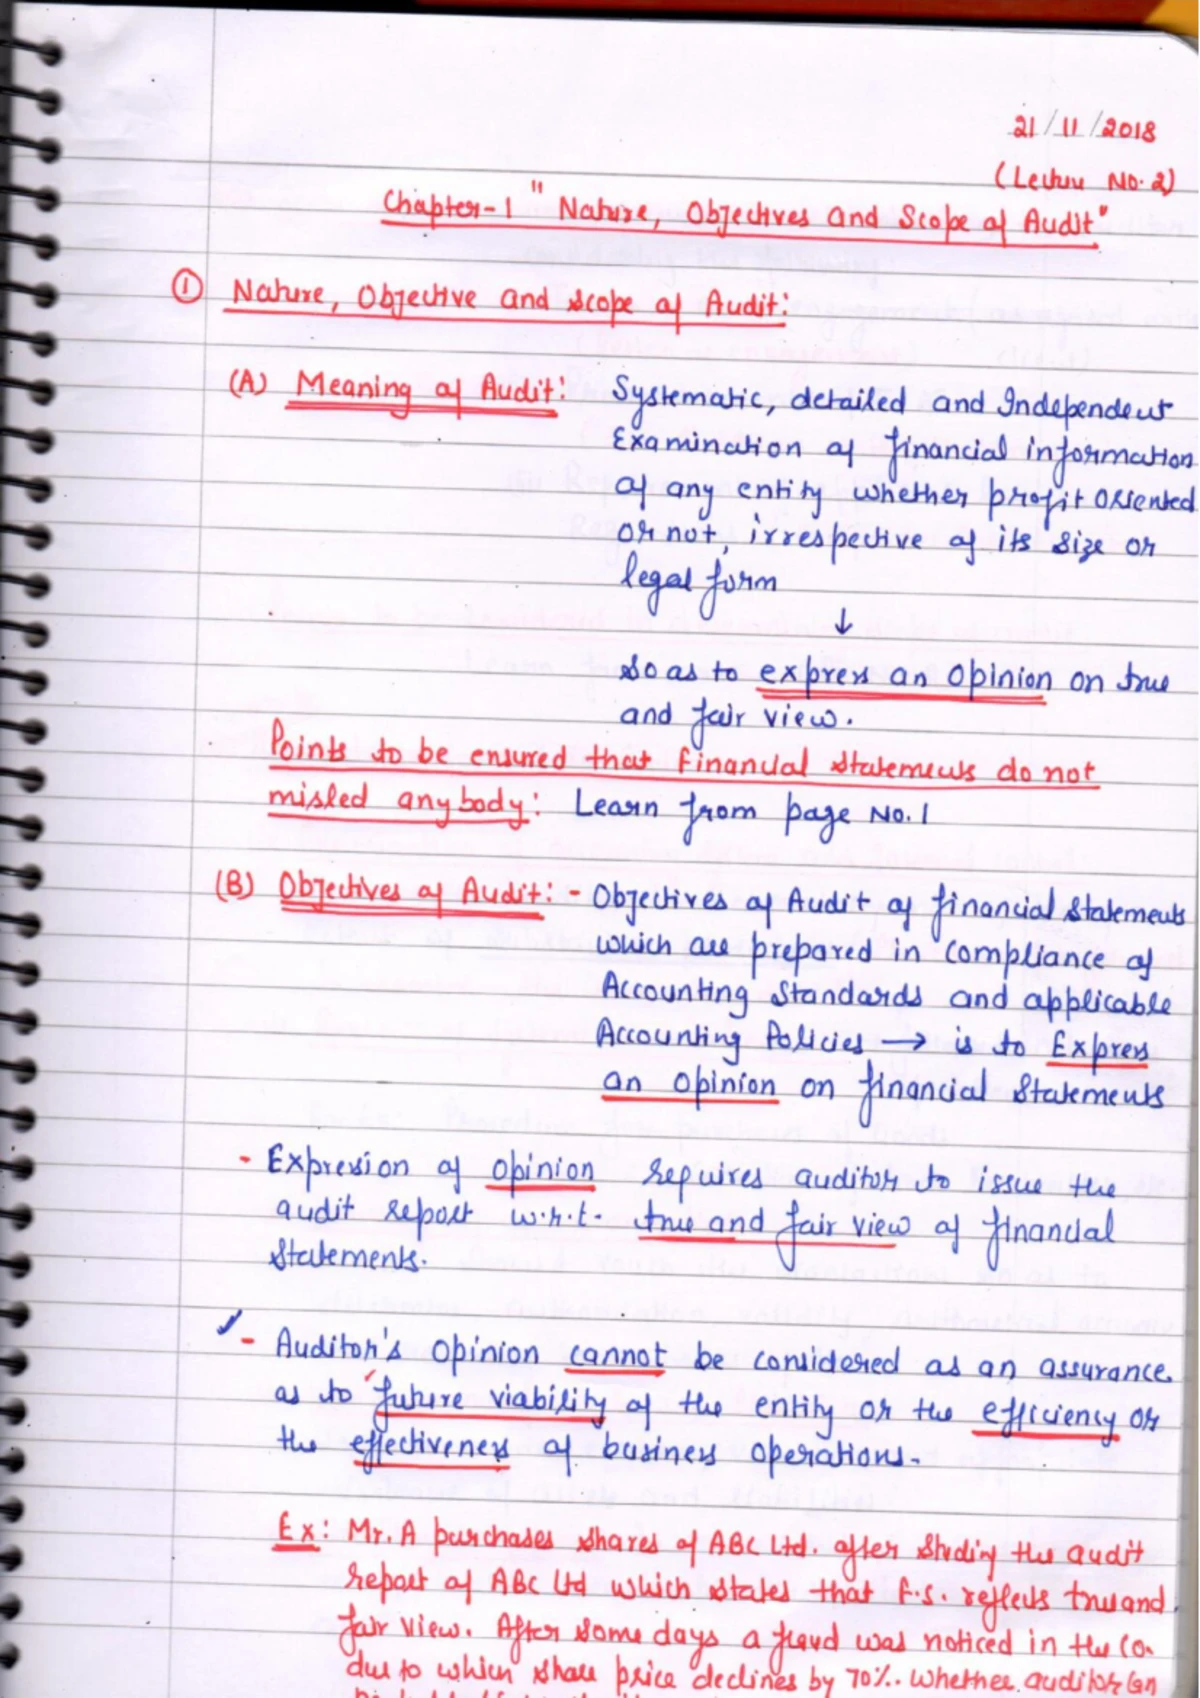 21/11/2018
(Lecture No. 2)
Chapter-1 "Nature, Objectives and Scope of Audit"
① Nature, Objective and Scope of Audit:
(A) Meaning of Audit: Systematic, detailed and Independent
Examination of financial information
of any entity whether profit oriented
or not, irrespective of its size or
legal form
↓
so as to express an opinion on true
and fair view.
Points to be ensured that financial statements do not
misled anybody: Learn from page No. 1
(B) Objectives of Audit: - Objectives of Audit of financial statements
which are prepared in compliance of
Accounting Standards and applicable
Accounting Policies → is to Express
an opinion on financial statements
- Expression of opinion requires auditor to issue the
audit report w.r.t. true and fair view of financial
statements.
- Auditor's opinion cannot be considered as an assurance
as to future viability of the entity or the efficiency or
the effectiveness of business operations.
Ex: Mr. A purchases shares of ABC Ltd. after studing the audit
report of ABC Ltd which states that f.s. reflects true and
fair view. After some days a fraud was noticed in the co.
due to which share price declines by 70%. whether auditor can